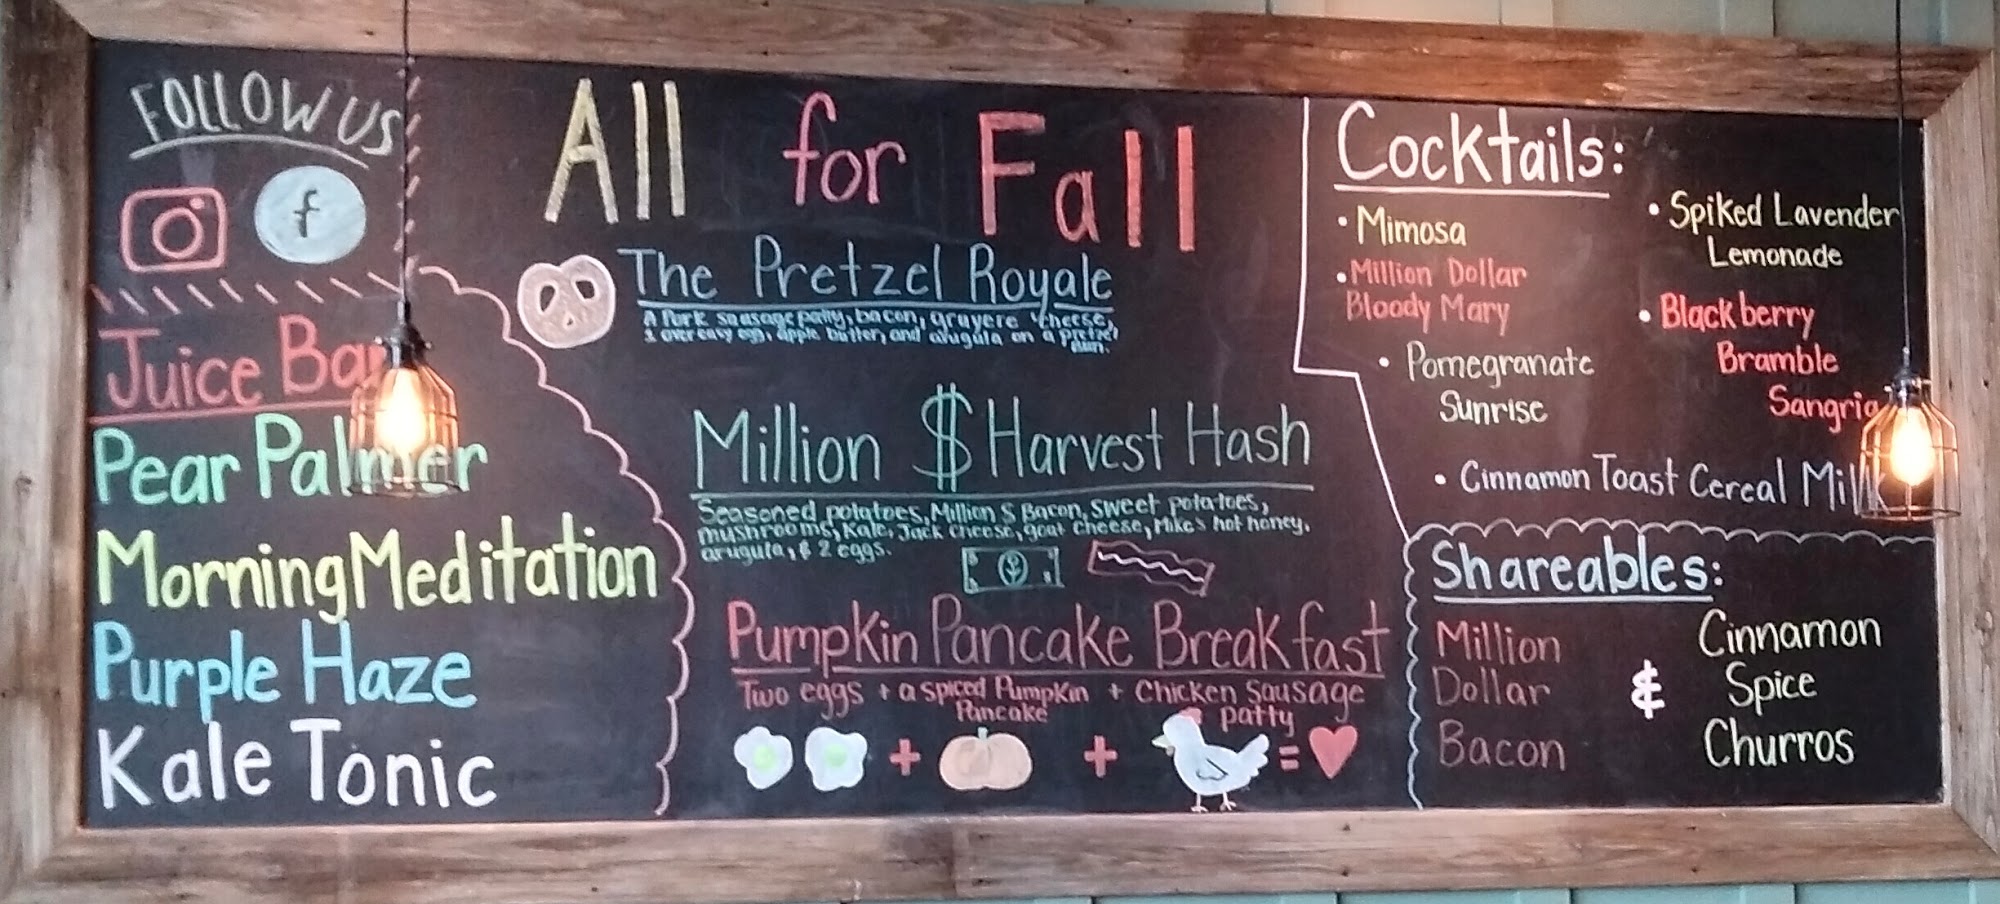 FOLLOW US
f
Juice Bar
Pear Palmer
Morning Meditation
Purple Haze
Kale Tonic
All for Fall
The Pretzel Royale
A Pork sausage patty, bacon, gruyere cheese,
1 over easy egg, apple butter, and arugula on a pretzel
bun.
Million $ Harvest Hash
Seasoned potatoes, Million $ Bacon, sweet potatoes,
mushrooms, Kale, Jack cheese, goat cheese, Mike's hot honey,
arugula, & 2 eggs.
Pumpkin Pancake Breakfast
Two eggs + a spiced Pumpkin + Chicken Sausage
Pancake patty
+ + =
Cocktails:
• Mimosa
• Million Dollar
Bloody Mary
• Pomegranate
Sunrise
• Spiked Lavender
Lemonade
• Blackberry
Bramble
Sangria
• Cinnamon Toast Cereal Milk
Shareables:
Million
Dollar
Bacon
&
Cinnamon
Spice
Churros